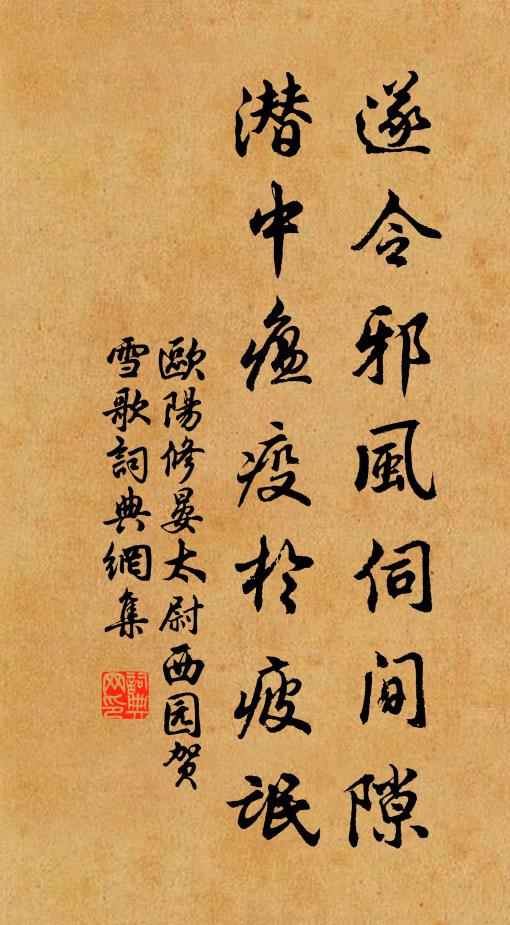 遂令邪風伺間隙
潜中瘟疫於疲氓
歐陽修晏太尉西园贺
雪歌詞典網集
詞典
网印